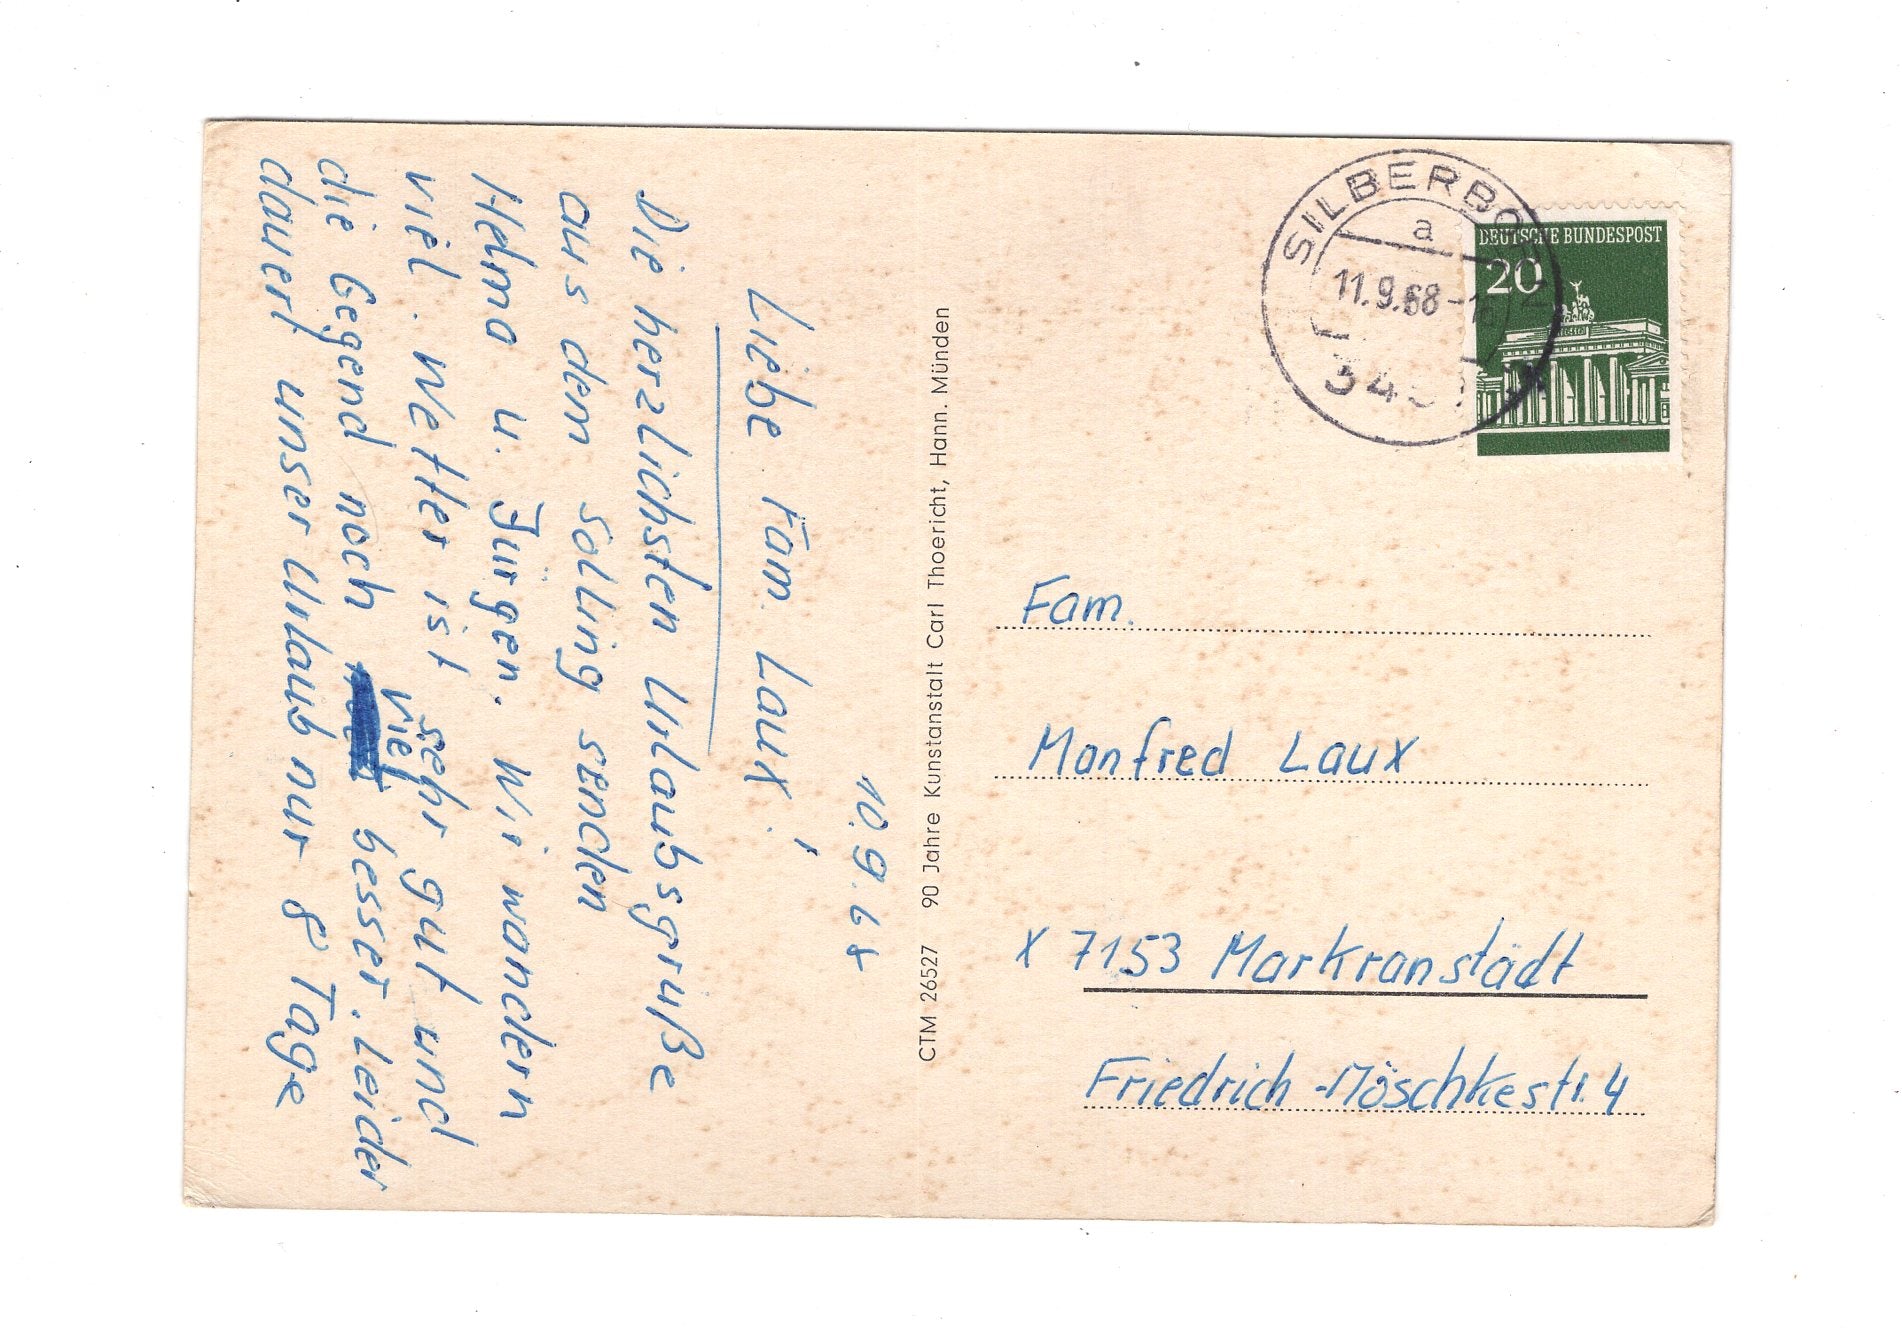 10.9.68
Liebe Fam. Laux!
Die herzlichsten Urlaubsgrüße
aus dem Solling senden
Helma u. Jürgen. Wi wandern
viel. Wetter ist sehr gut und
die Gegend noch viel besser. Leider
dauert unser Urlaub nur 8 Tage
CTM 26527 90 Jahre Kunstanstalt Carl Thoericht, Hann. Münden
SILBERBORN
a
11.9.68-16
DEUTSCHE BUNDESPOST
20
Fam.
Manfred Laux
X 7153 Markranstädt
Friedrich-Möschkestr. 4